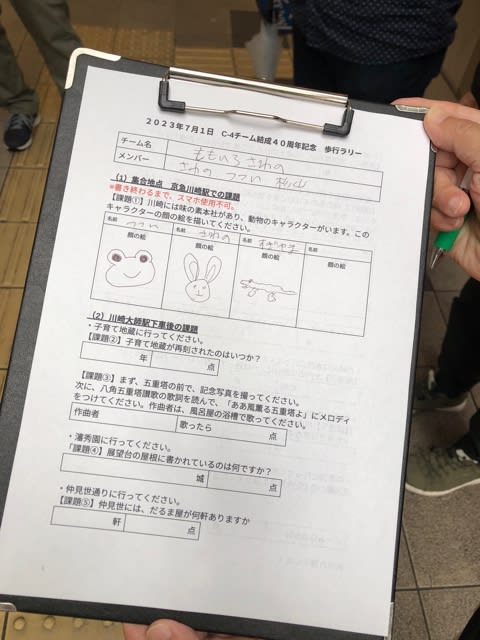 2023年7月1日 C-4チーム結成40周年記念 歩行ラリー
チーム名 ももいろさわの
メンバー さわの つつい 杉山
(1)集合地点 京急川崎駅での課題
※書き終わるまで、スマホ使用不可。
【課題①】川崎には味の素本社があり、動物のキャラクターがいます。この
キャラクターの顔の絵を描いてください。
名前 つつい 名前 さわの 名前 すぎやま 名前
顔の絵 顔の絵 顔の絵 顔の絵
(2)川崎大師駅下車後の課題
・子育て地蔵に行ってください。
【課題②】子育て地蔵が再刻されたのはいつか?
年 点
【課題③】まず、五重塔の前で、記念写真を撮ってください。
次に、八角五重塔讃歌の歌詞を読んで、「ああ風薫る五重塔よ」にメロディ
をつけてください。作曲者は、風呂屋の浴槽で歌ってください。
作曲者 歌ったら 点
・瀋秀園に行ってください。
「課題④】展望台の屋根に書かれているのは何ですか?
城 点
・仲見世通りに行ってください。
【課題⑤】仲見世には、だるま屋が何軒ありますか
軒 点